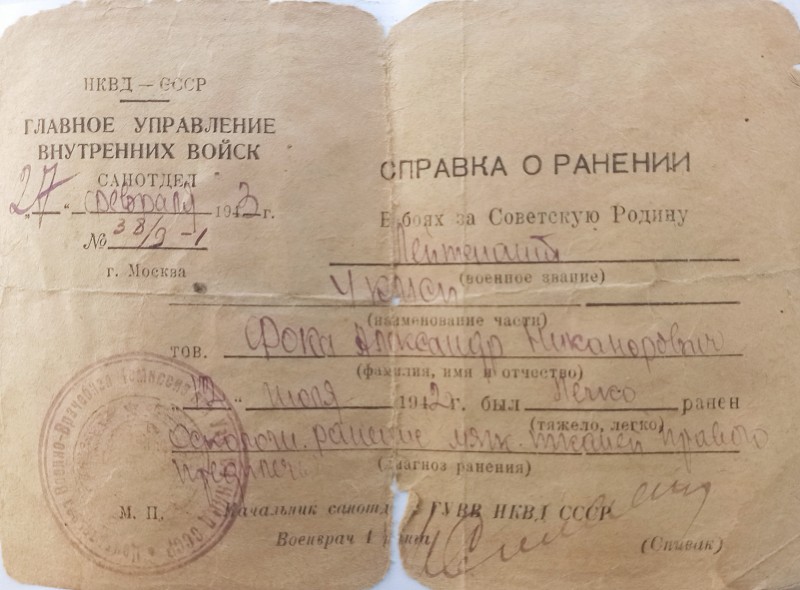 НКВД — СССР
ГЛАВНОЕ УПРАВЛЕНИЕ
ВНУТРЕННИХ ВОЙСК
САНОТДЕЛ
„27“ февраля 1943 г.
№ 38/9-1
г. Москва
СПРАВКА О РАНЕНИИ
В боях за Советскую Родину
Лейтенант
(военное звание)
(наименование части)
тов. Фока Александр Никанорович
(фамилия, имя и отчество)
„12“ июля 1942 г. был легко ранен
(тяжело, легко)
Осколочн. ранение мягк. тканей правого
предплеч
(диагноз ранения)
М. П.
Начальник санотд ГУВВ НКВД СССР
Военврач 1
(Спивак)
Военно-Врачебная Комиссия